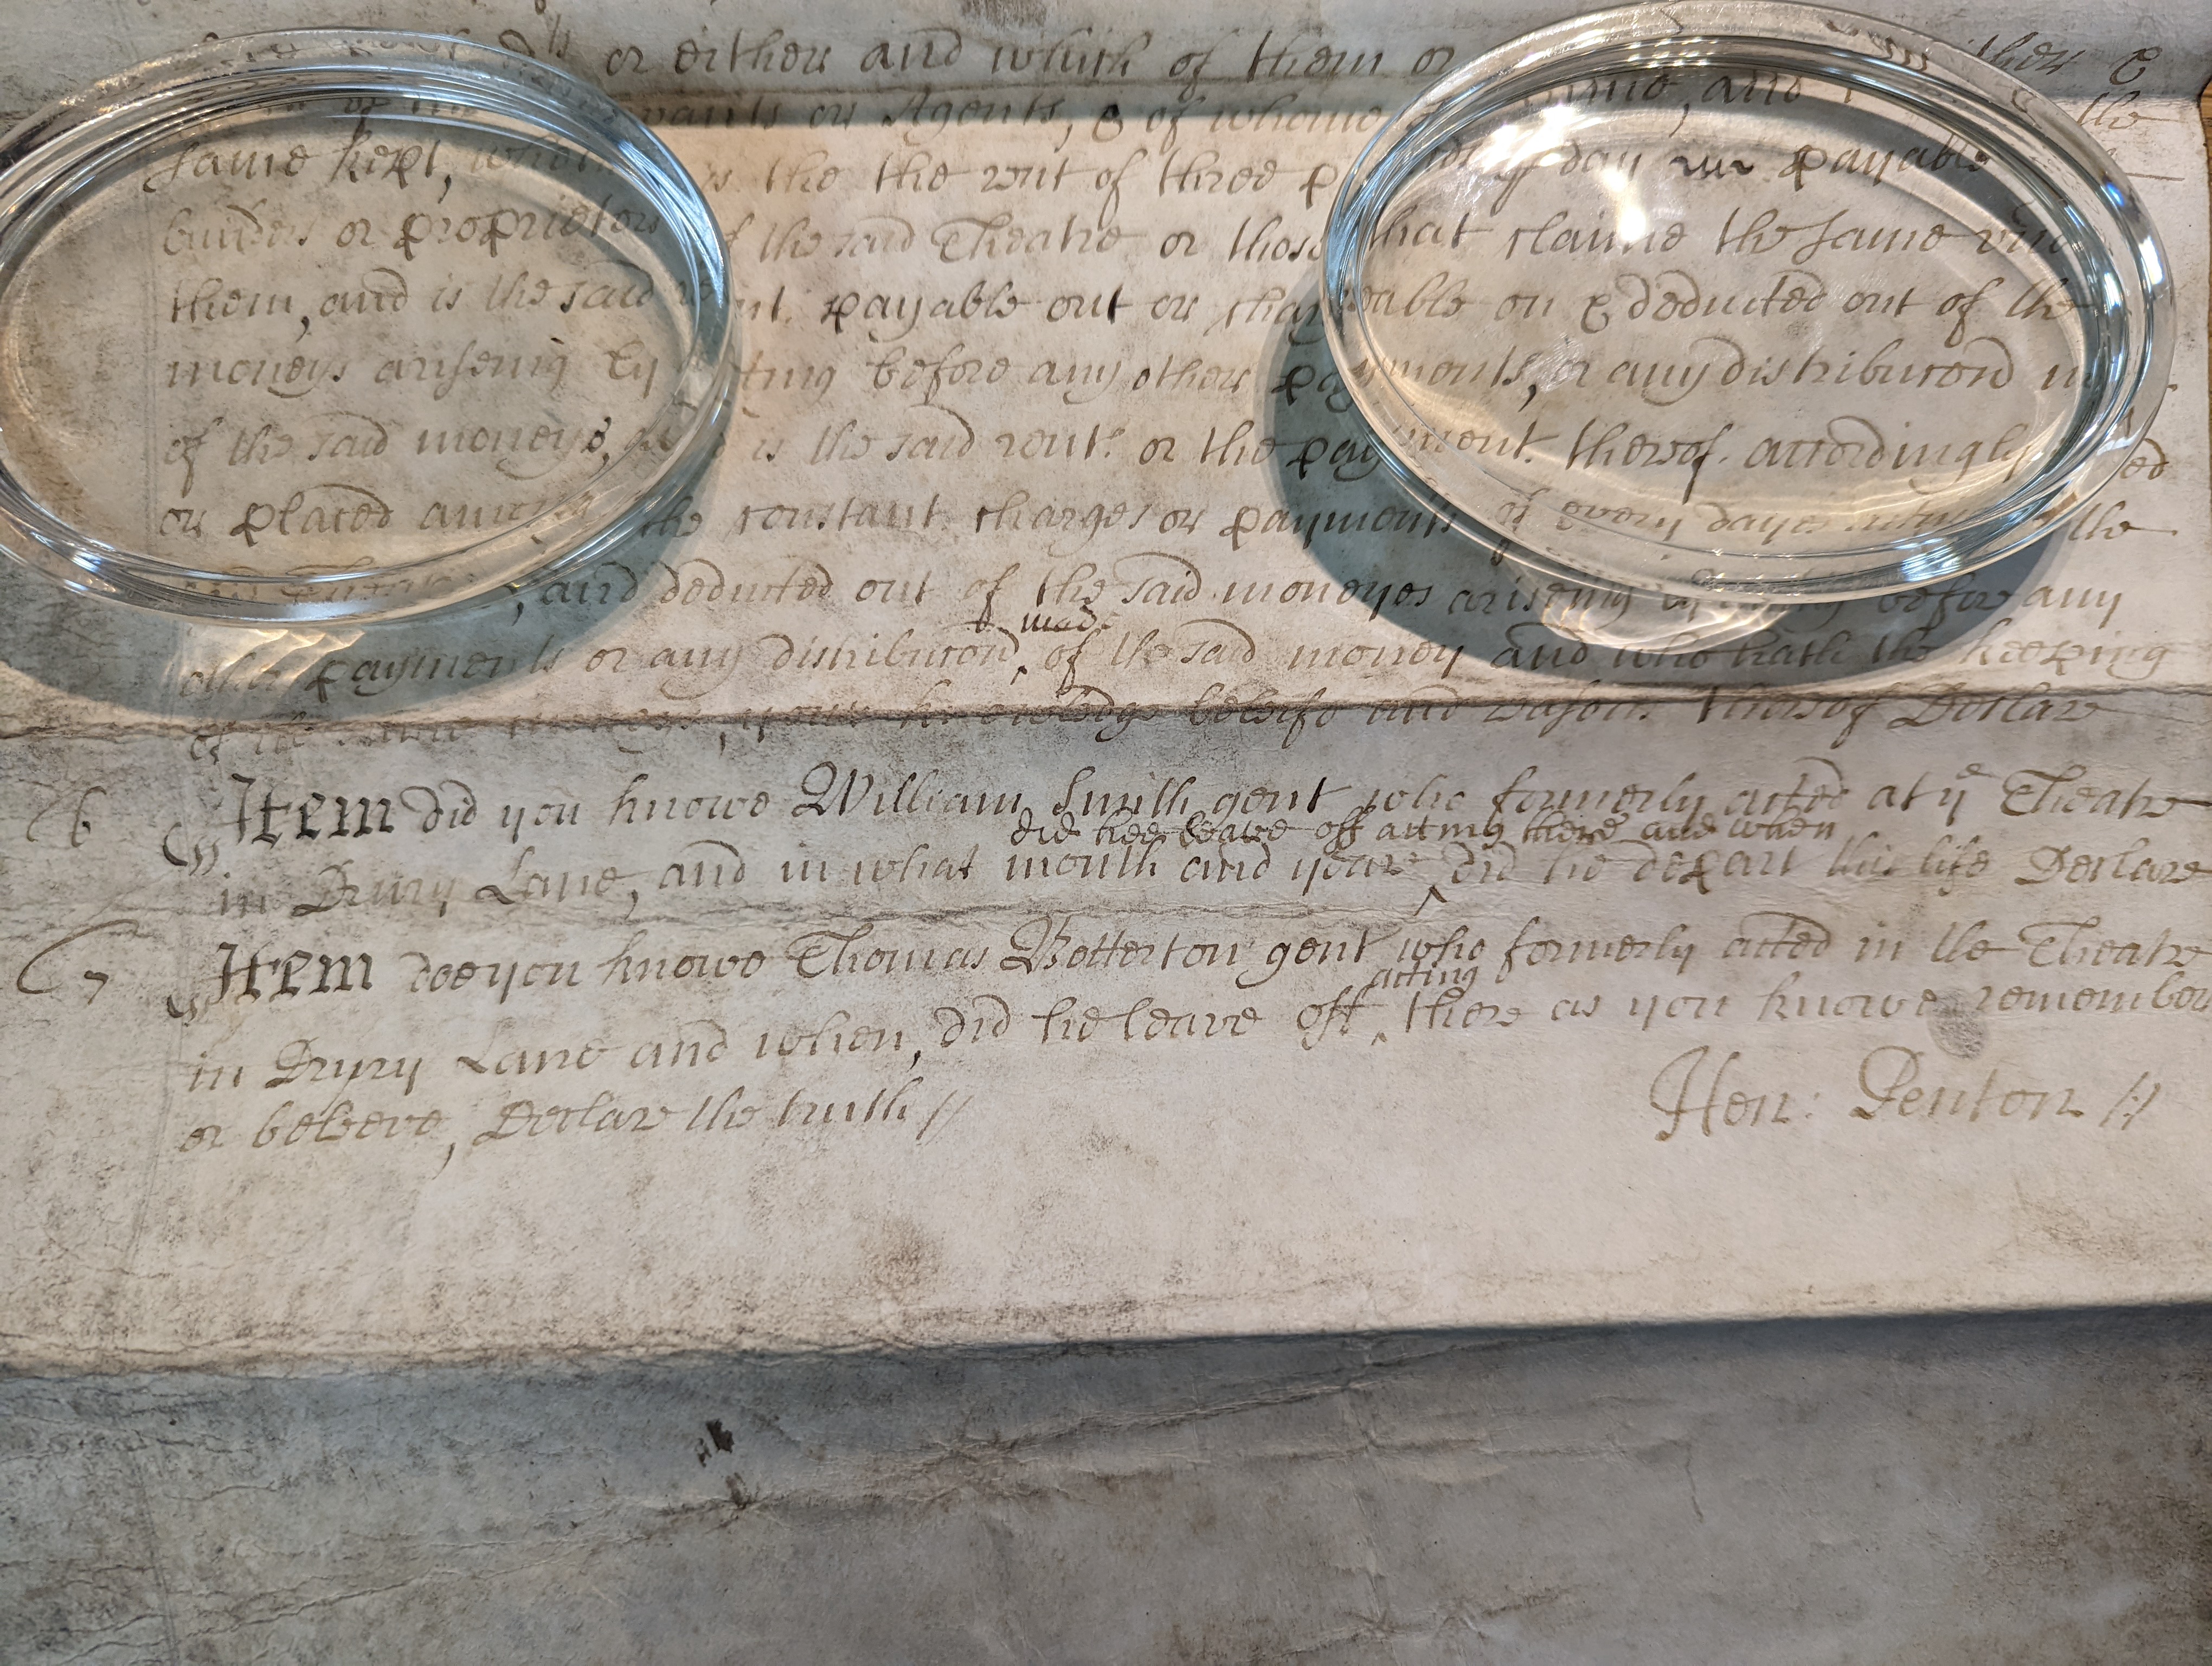 or either and which of them or
or Agents, & of whome and the
same kept, is the the rent of three day payable
builders or proprietors of the said Theatre or those that claime the same
them, and is the said rent payable out or chargeable on & deducted out of the
moneys ariseing by acting before any other payments, or any distribucon
of the said moneys, is the said rent or the payment thereof accordingly
or placed among the constant charges or payments of every dayes the
and deducted out of the said moneyes ariseing by before any
made
other payments or any distribucon ^ of the said money and who hath the keeping
of the same moneys, your knowledge beleife and reason thereof Declare
6 Item did you knowe William Smith gent who formerly acted at ye Theatre
did hee leave off acting there and when
in Drury Lane, and in what month and year ^ did he depart this life Declare
7 Item doe you knowe Thomas Betterton gent who formerly acted in the Theatre
acting
in Drury Lane and when, did he leave off ^ there as you knowe remember
or beleeve, Declare the truth //
Hen: Penton //